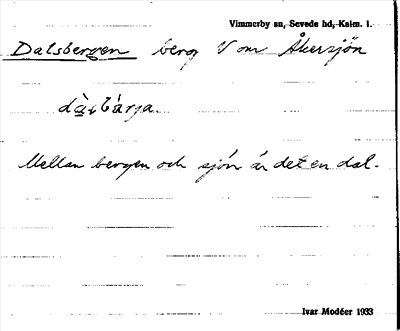 Vimmerby sn, Sevede hd, Kalm. l.
Dalsbergen berg V om Åkersjön
Mellan bergen och sjön är det en dal.
Ivar Modéer 1933